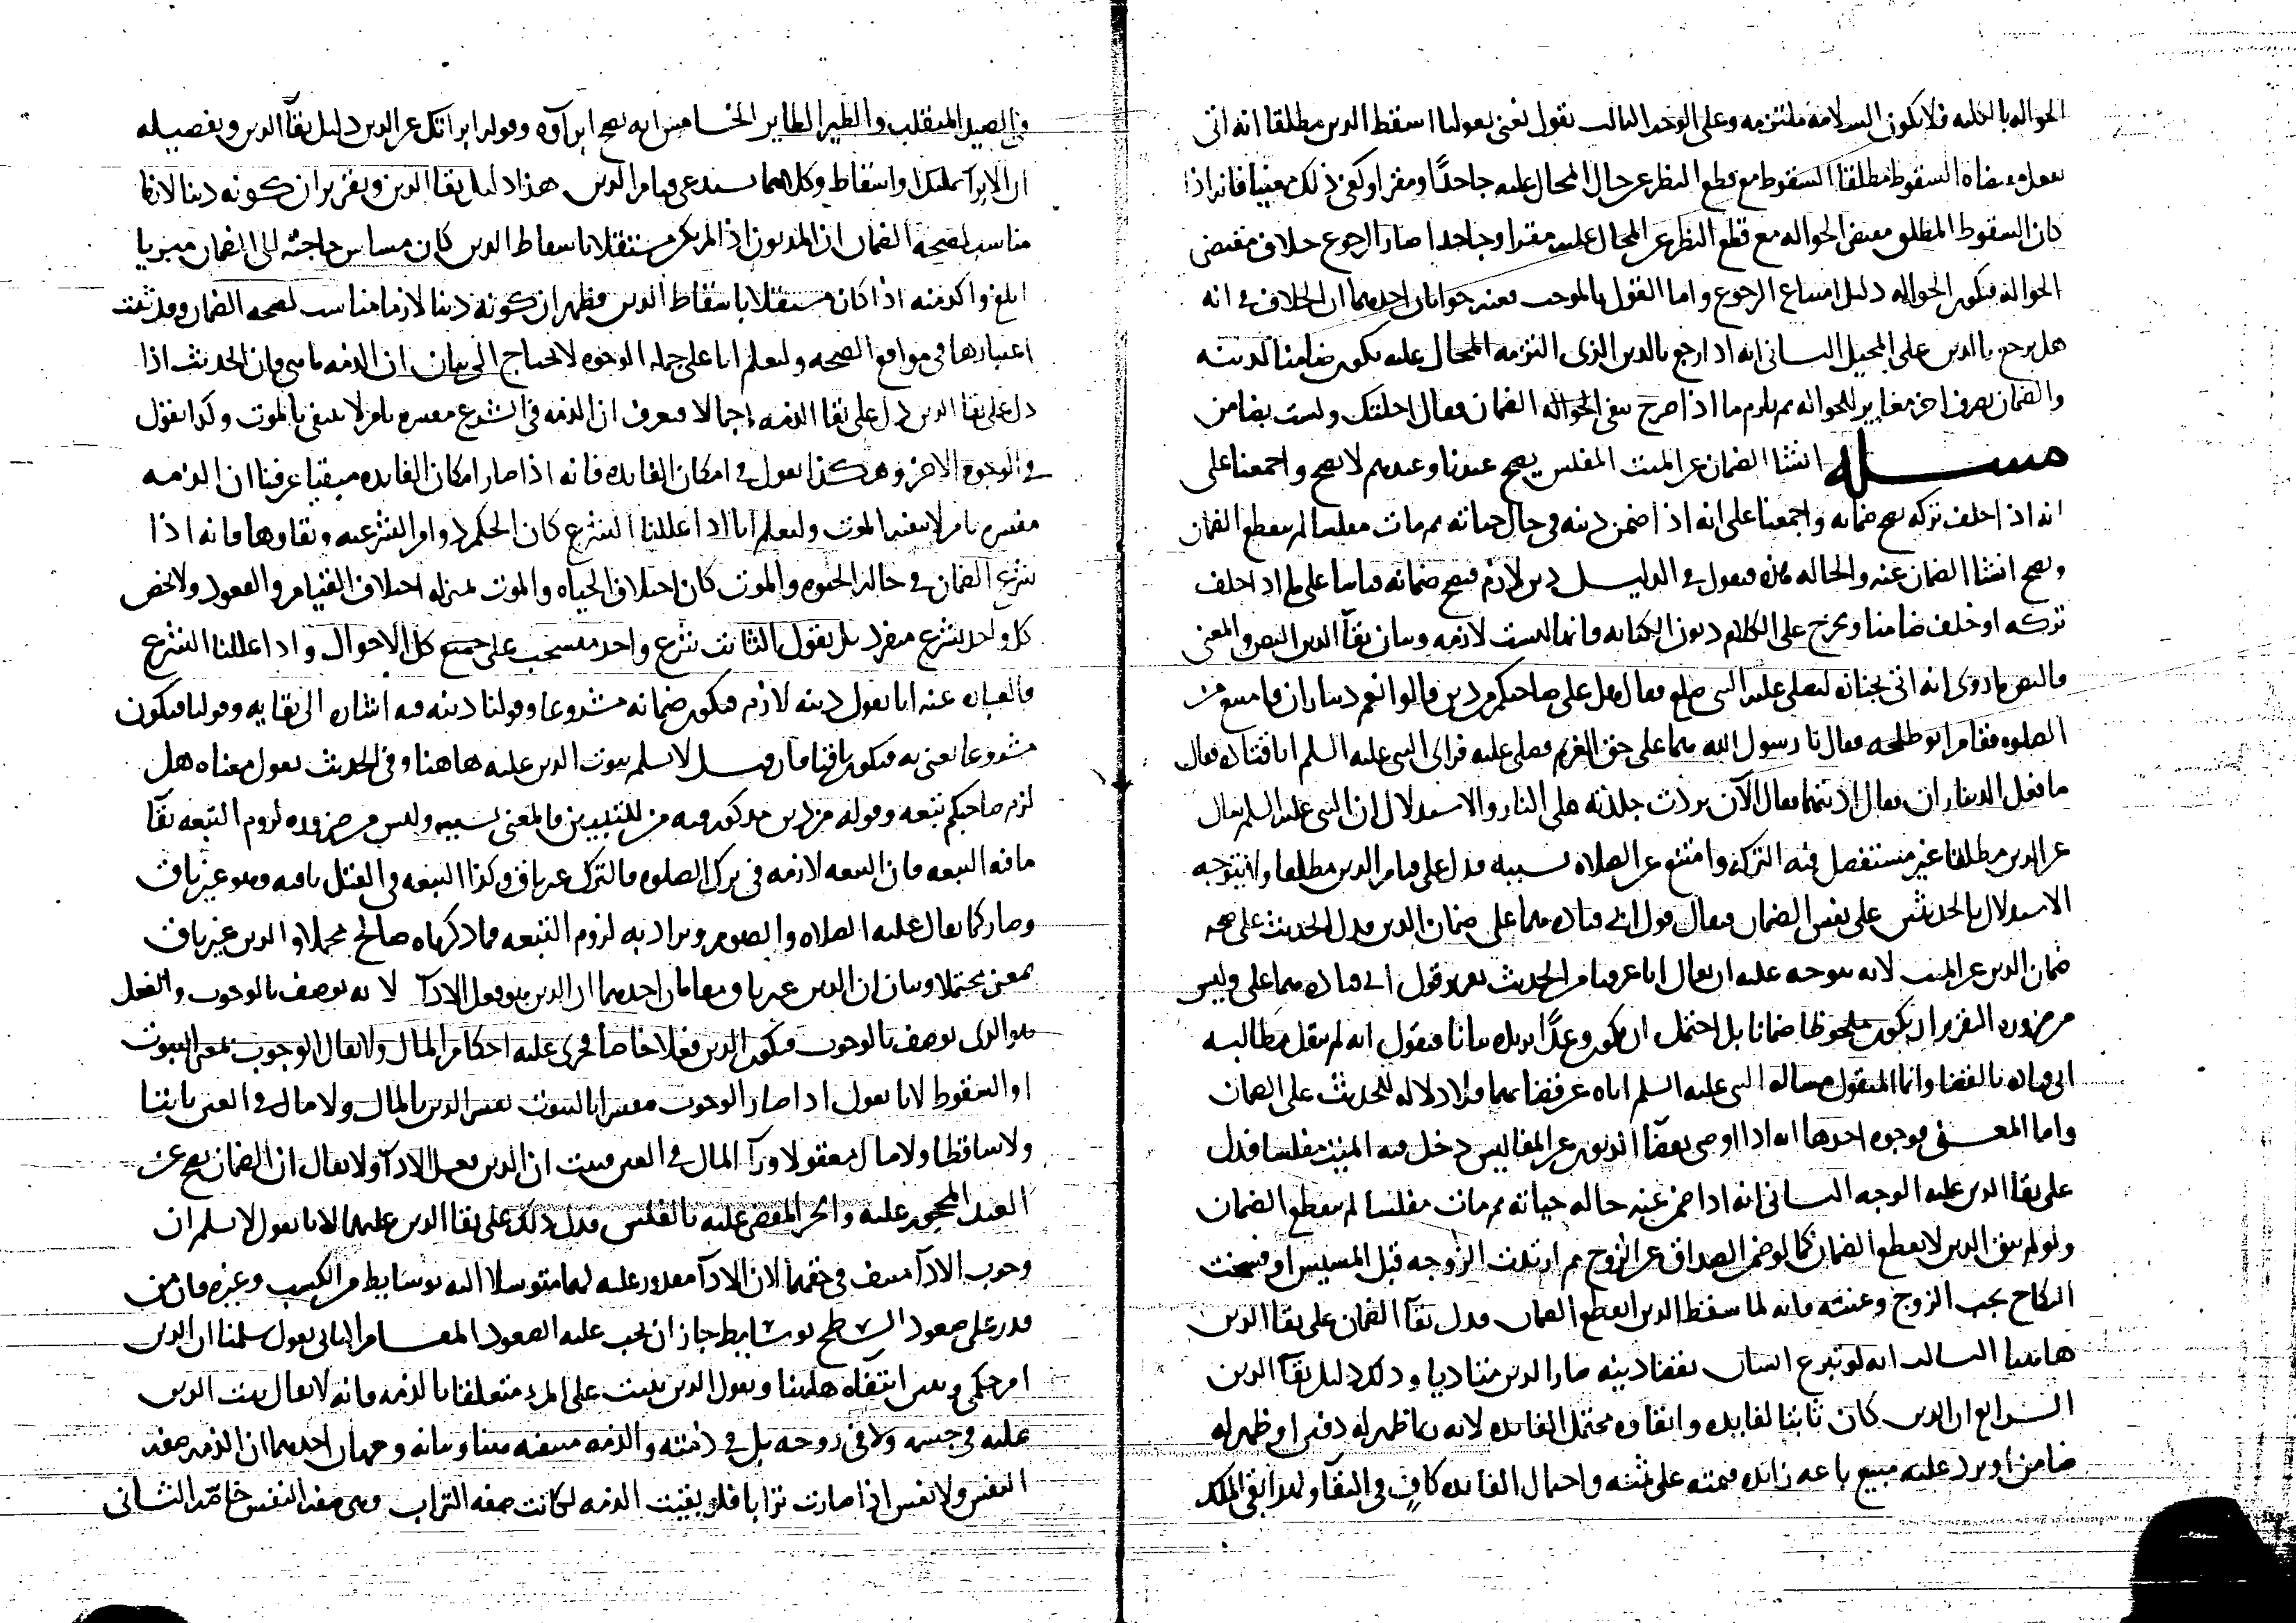 الحواله بالكليه فلا يكون السلامه ملتزمه وعلى الوجه الثالث نقول نعنى بقولنا اسقط الدين مطلقا انه اتى
بعقد مقتضاه السقوط مطلقا السقوط مع قطع النظر عن حال المحال عليه جاحدًا ومقرا وكفى ذلك مغنيا فانه اذا
كان السقوط المطلق مقتضى الحواله مع قطع النظر عن المحال عليه مقرا وجاحدا صار الرجوع خلاف مقتضى
الحواله فيكون الحواله دليل امتناع الرجوع واما القول بالموجب فعنه جوابان احدهما ان الخلاف في انه
هل يرجع بالدين على المحيل الثاني انه اذا رجع بالدين الذى التزمه المحال عليه يكون ضامنا لدينه
والضمان تصرف اخر مغاير للحواله ثم يلزم ما اذا صرح بنفى الحواله الضمان فقال احلتك ولست بضامن
مسله انشا الضمان عن الميت المفلس يصح عندنا وعندهم لا يصح واجمعنا على
انه اذا خلف تركه يصح ضمانه واجمعنا على انه اذا ضمن دينه في حال حياته ثم مات مفلسا لم ينقطع الضمان
ويصح انشا الضمان عنه والحاله هذه فنقول في الدليل دين لازم فيصح ضمانه قياسا على ما اذا خلف
تركه او خلف ضامنا ويخرج على الكلام ديون الكتابه فانها ليست لازمه وبيان بقآ الدين النص والمعنى
فالنص ما روى انه اتى بجنازه ليصلى عليه النبى صلع فقال هل على صاحبكم من دين قالوا نعم ديناران فامتنع من
الصلوه فقام ابو طلحه فقال يا رسول الله هما على حق الغريم فصلى عليه فراى النبى عليه السلم ابا قتاده فقال
ما فعل الديناران فقال اديتهما فقال الآن بردت جلدته على النار والاستدلال ان النبى عليه السلم سال
عن الدين مطلقا غير مستفصل فيه التركه وامتنع عن الصلاه بسببه فدل على قيام الدين مطلقا ولا يتوجه
الاستدلال بالحديث على نفس الضمان فيقال قول ابى قتاده هما على ضمان الدين فدل الحديث على صحه
ضمان الدين عن الميت لانه يتوجه عليه ان يقال اما عرف من الحديث تقرير قول ابى قتاده هما على وليس
من ضروره التقرير ان يكون ملحوظا ضمانا بل احتمل ان يكون وعدًا نريده بيانا فنقول انه لم ينقل مطالبه
ابى قتاده بالقضا وانما المنقول مساله النبى عليه السلم اياه عن قضائهما فلا دلاله للحديث على الضمان
واما المعنى فوجوه احدها انه اذا اوصى بقضآ الديون عن المفاليس دخل فيه الميت مفلسا فدل
على بقا الدين عليه الوجه الثاني انه اذا ضمن عنه حاله حياته ثم مات مفلسا لم ينقطع الضمان
ولو لم يبق الدين لانقطع الضمان كما لو ضمن الصداق عن الزوج ثم ارتدت الزوجه قبل المسيس او فسخت
النكاح بجب الزوج وعنته فانه لما سقط الدين انقطع الضمان فدل بقآ الضمان على بقا الدين
هاهنا الثالث انه لو تبرع انسان بقضا دينه صار الدين متاديا وذلك دليل بقآ الدين
الرابع ان الدين كان ثابتا لفايده وابقاوه محتمل الفايده لانه ربما ظهر له دفين او ظهر له
ضامن او يرد عليه مبيع باعه زائده قيمته على ثمنه واحتمال الفايده كافٍ في البقآ ولهذا بقى الملك
في الصيد المنفلت والطير الطاير الخامس انه يصح ابرآوه وقوله ابراتك عن الدين دليل بقآ الدين وتفصيله
ان الابرآ تمليك او اسقاط وكلاهما يستدعى قيام الدين هذا دليل بقا الدين وتقرير ان كونه دينا لازما
مناسب لصحه الضمان ان المديون اذا لم يكن مستقلا باسقاط الدين كان مساس حاجته الى الضمان مبريا
ابلغ واكد منه اذا كان مستقلا باسقاط الدين فظهر ان كونه دينا لازما مناسب لصحه الضمان وقد ثبت
اعتبارها في مواقع الصحه وليعلم انا على جمله الوجوه لا نحتاج الى بيان ان الذمه ما هى فان الحديث اذا
دل على بقا الدين دل على بقا الذمه اجمالا فيعرف ان الذمه في الشرع مفسره بامر لا ينتفى بالموت وكذا نقول
في الوجوه الاخر وهكذا نقول في امكان الفايده فانه اذا صار امكان الفايده مبقيا عرفنا ان الذمه
مفسره بامر لا يغيره الموت وليعلم انا اذا عللنا الشرع كان الحكم دوام الشرعيه وبقاوها فانه اذا
شرع الضمان في حاله الحيوه والموت كان اختلاف الحياه والموت بمنزله اختلاف القيام والقعود ولا نخص
كل واحد بشرع مفرد بل نقول الثابت شرع واحد منسحب على جميع كل الاحوال واذا عللنا الشرع
فالعباره عنه انا نقول دينه لازم فيكون ضمانه مشروعا وقولنا دينه فيه اشاره الى بقايه وقولنا فيكون
مشروعا نعنى به فيكون باقيا فان قيل لا نسلم ثبوت الدين عليه هاهنا وفى الحديث نقول معناه هل
لزم صاحبكم تبعه وقوله من دين مذكور فيه من للتبيين فالمعنى بسببه وليس من ضروره لزوم التبعه بقآ
ما فيه التبعه فان التبعه لازمه في ترك الصلوه فالترك غير باق وكذا التبعه في القتل باقيه وهو غير باق
وصار كما يقال عليه الصلاه والصوم ويراد به لزوم التبعه فما ذكرناه صالح محملا والدين غير باق
بمعنى محتملا وبيان ان الدين غير باق مقامان احدهما ان الدين هو فعل الادآ لانه يوصف بالوجوب والفعل
هو الذى يوصف بالوجوب فيكون الدين فعلا خاصا تجرى عليه احكام المال ولا يقال الوجوب بمعنى الثبوت
او السقوط لانا نقول اذا صار الوجوب مفسرا بالثبوت نفسر الدين بالمال ولا مال في العين ثابتا
ولا ساقطا ولا مال معقولا ورآ المال في العين فثبت ان الدين فعل الادآ ولا يقال ان الضمان يصح عن
العبد المحجور عليه والحر المقضى عليه بالفلس فدل ذلك على بقا الدين عليهما لانا نقول لا نسلم ان
وجوب الادآ منتف في حقهما لان الادآ مقدور عليه لهما متوسلا اليه بوسايط من الكسب وغيره فان من
قدر على صعود السطح بوسايط جاز ان يجب عليه الصعود المقام الثانى نقول سلمنا ان الدين
امر حكمى ويبين انتفاه هاهنا ونقول الدين يثبت على المرء متعلقا بالذمه فانه لا يقال يثبت الدين
عليه في جسمه ولا في روحه بل في ذمته والذمه منتفيه هنا وبيانه وجهان احدهما ان الذمه صفه
النفس ولا نفس اذا صارت ترابا فلو بقيت الذمه لكانت صفه التراب وهى صفه النفس خاصه الثانى